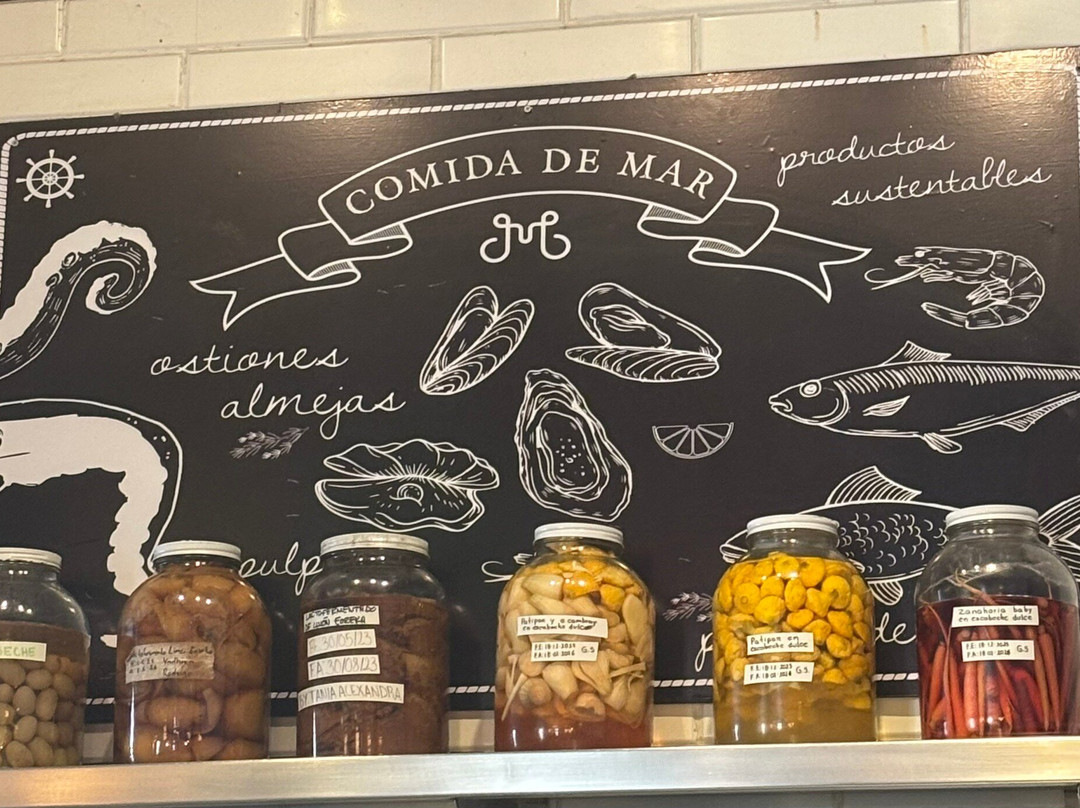 COMIDA DE MAR
productos
sustentables
ostiones
almejas
pulp
de
ECHE
LACTOFERMENTADO
DE LIMÓN EUREKA
FE 30/05/23
FA 30/08/23
TANIA ALEXANDRA
Patipan y a cambray
en escabeche dulce
F.E: 18-12-2023
F.A: 18-03-2024
G.S
Patipan en
escabeche dulce
F.E: 18-12-2023
F.A: 18-03-2024
G.S.
Zanahoria baby
en escabeche dulce
F.E: 18-12-2023
F.A: 18-03-2024
G.S.